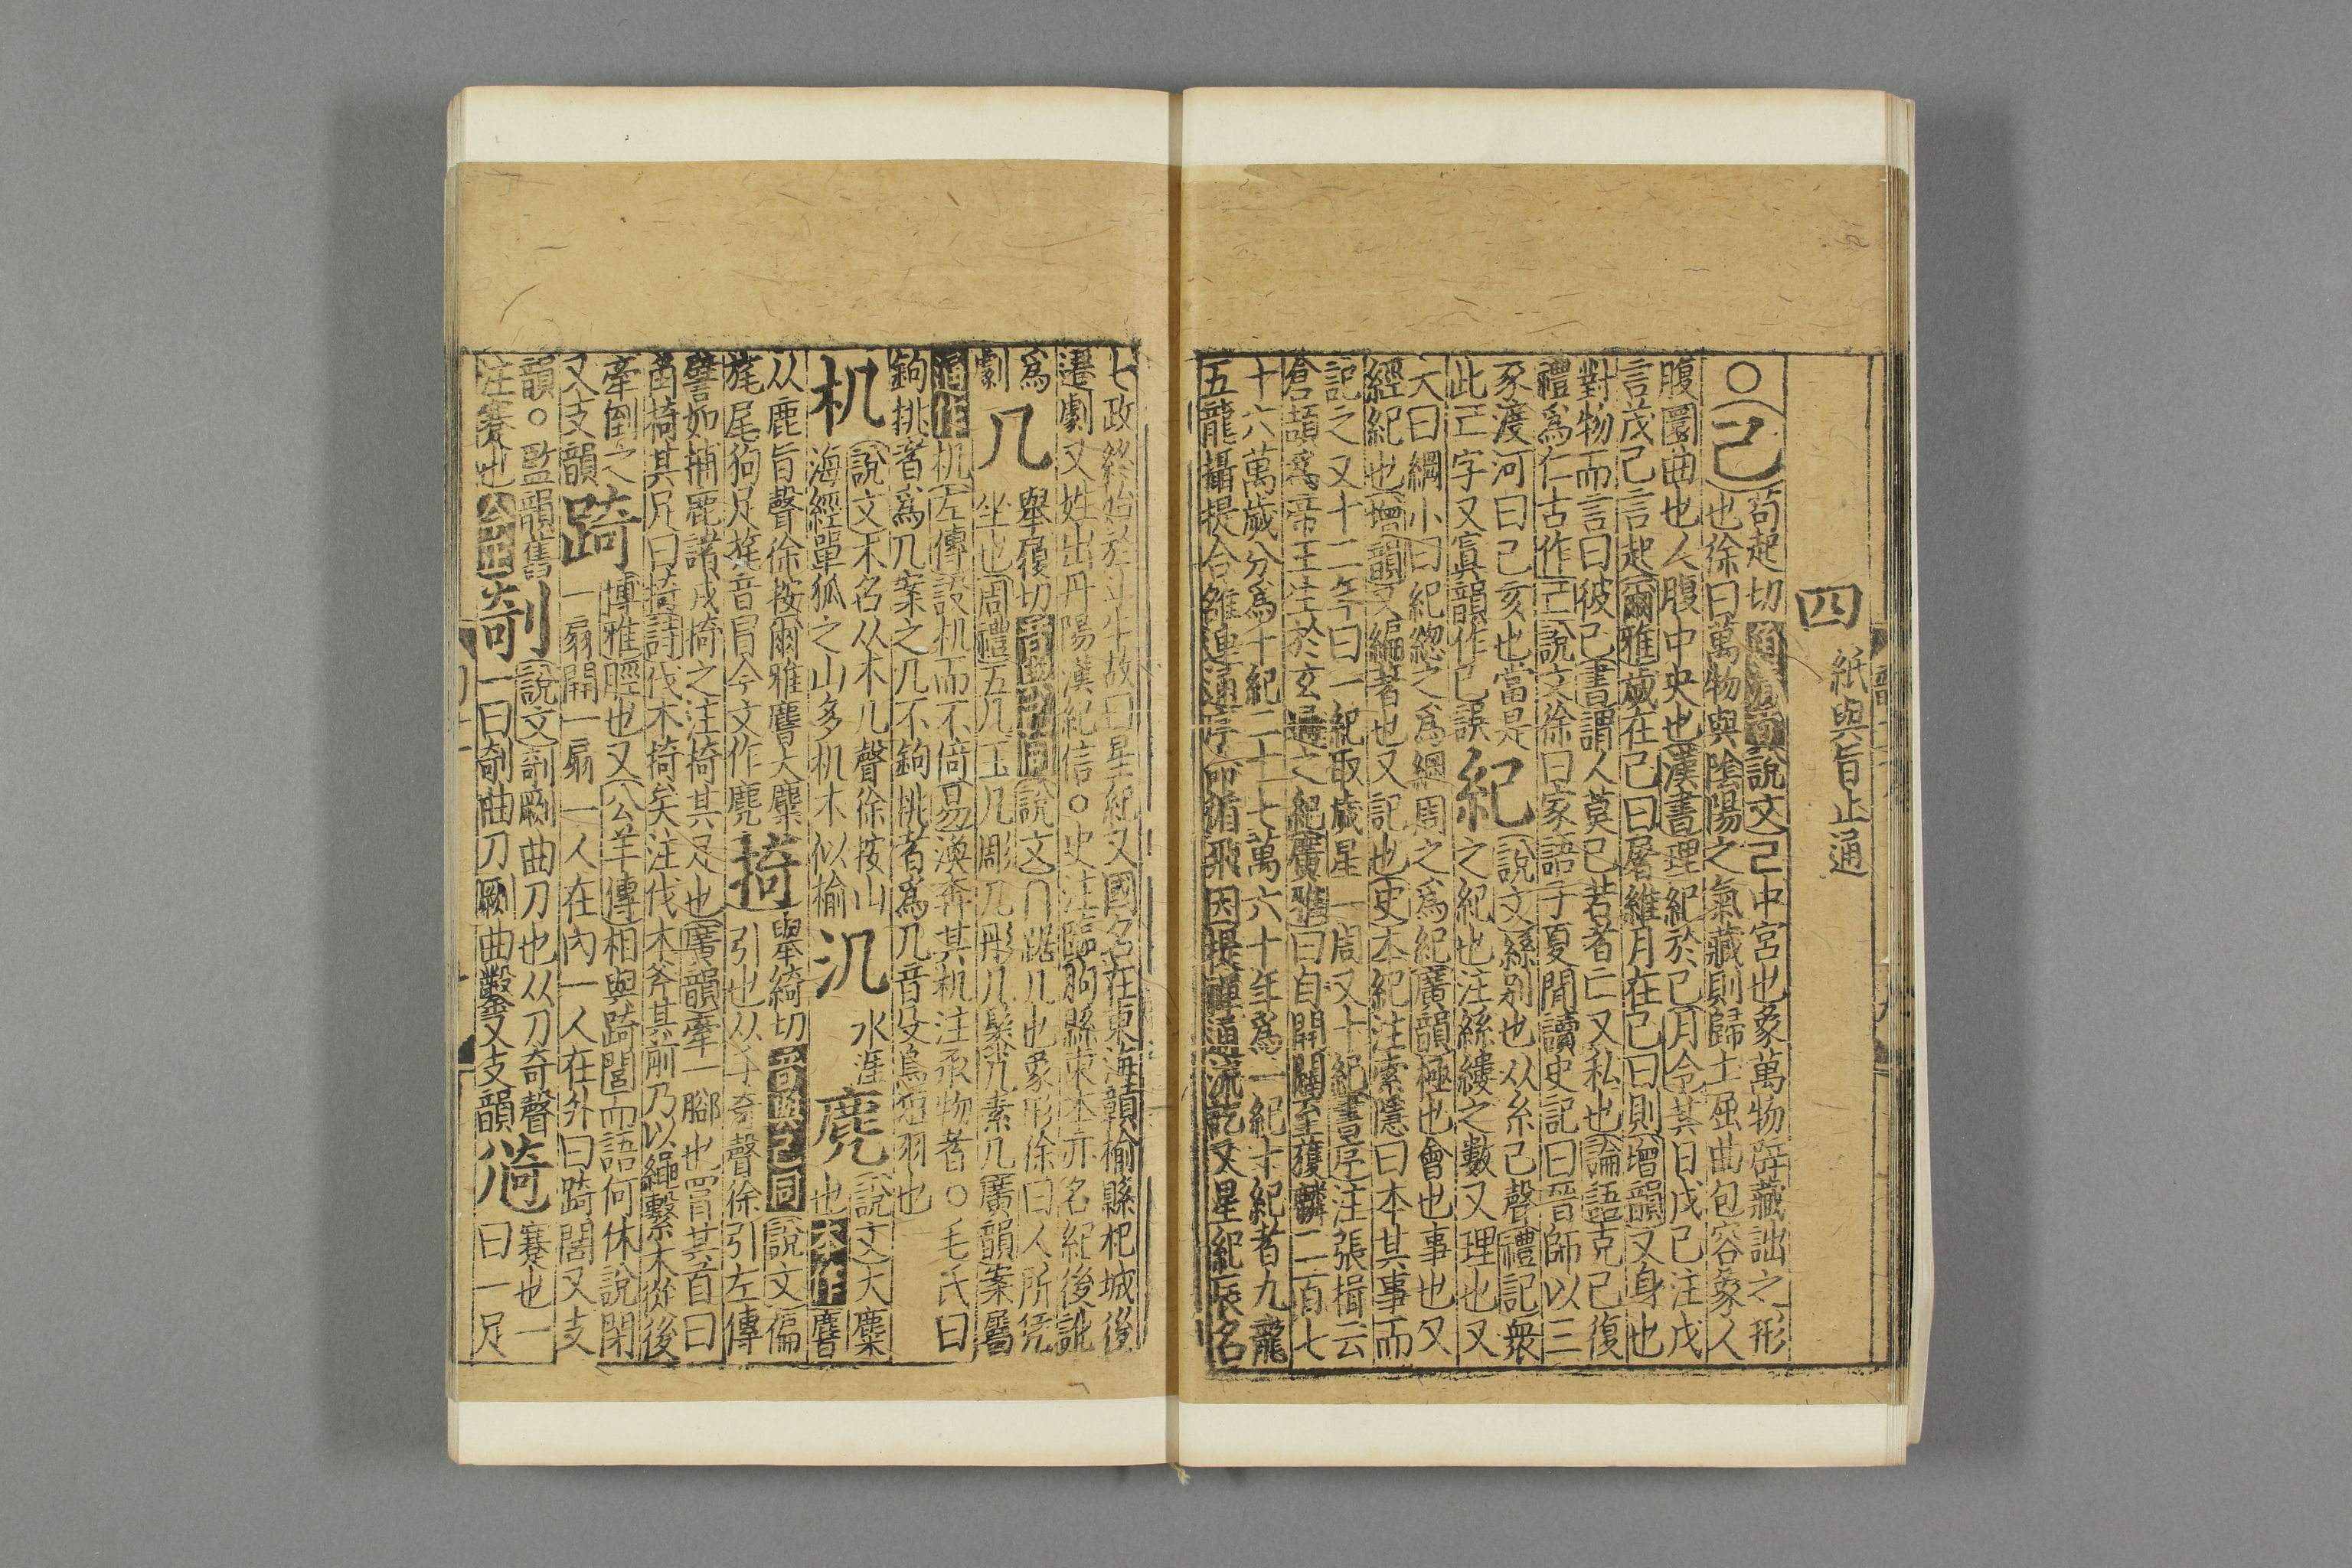 四
紙與旨止通
○己
苟起切
說文己中宮也象萬物辟藏詘之形
也徐曰萬物與陰陽之氣藏則歸土屈曲包容象人
腹圜曲也人腹中央也漢書理紀於己月令其日戊己注戊
言茂己言起爾雅歲在己曰屠維月在己曰則增韻又身也
對物而言曰彼己書謂人莫己若者亡又私也論語克己復
禮爲仁古作𢀒說文徐曰家語子夏聞讀史記曰晉師以三
豕渡河曰己亥也當是
此𢀒字又寘韻作己誤
紀
說文絲別也从糸己聲禮記衆
之紀也注絲縷之數又理也又
大曰綱小曰紀緫之爲綱周之爲紀廣韻極也會也事也又
經紀也增韻又編著也又記也史本紀注索隱曰本其事而
記之又十二年曰一紀取歲星一周又十紀書序注張揖云
倉頡爲帝王生於玄邊之紀廣雅曰自開闢至獲麟二百七
十六萬歲分爲十紀二十七萬六十年爲一紀十紀者九龍
五龍攝提合雒連通序命循飛因提禪通流訖又星紀辰名
七政終始於斗牛故曰星紀又國名在東海贛榆縣杞城後
遷劇又姓出丹陽漢紀信○史注臨朐縣東本亦名紀後訛
爲
劇
几
舉履切
說文几踞几也象形徐曰人所凭
坐也周禮五几玉几彫几彤几髹几素几廣韻案屬
通作机左傳設机而不倚易渙奔其机注承物者○毛氏曰
鉤挑者爲几案之几不鉤挑者爲几音殳鳥短羽也
机
說文木名从木几聲徐按山
海經單狐之山多机木似榆
氿
水涯
麂
說文大麋
也本作麔
从鹿旨聲徐按爾雅麔大麋
旄尾狗足旄音冒今文作麂
掎
舉綺切
說文偏
引也从手奇聲徐引左傳
譬如捕鹿諸戎掎之注掎其足也廣韻牽一腳也罥其首曰
角掎其足曰掎詩伐木掎矣注伐木斧其前乃以繩繫木從後
牽倒之
又支韻
踦
博雅脛也又公羊傳相與踦閭而語何休說閉
一扇開一扇一人在內一人在外曰踦閭又支
韻○監韻舊
注蹇也
剞
說文剞劂曲刀也从刀奇聲
一曰剞曲刀劂曲鑿又支韻
㢡
蹇也一
曰一足